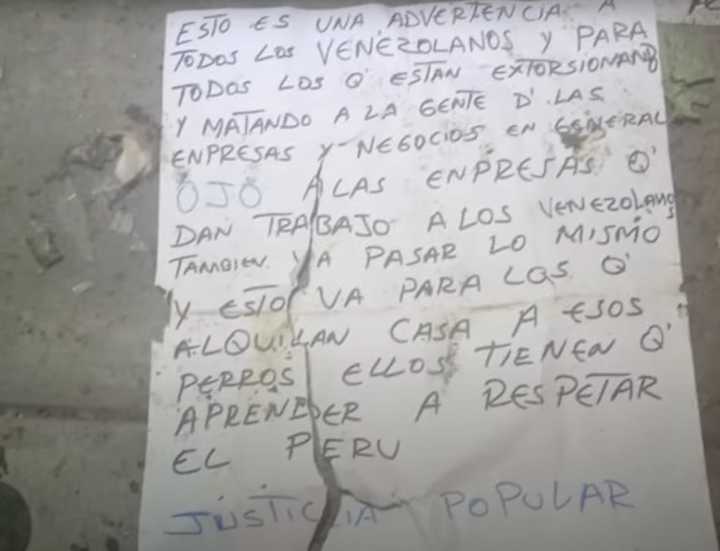 ESTO ES UNA ADVERTENCIA A
TODOS LOS VENEZOLANOS Y PARA
TODOS LOS Q' ESTAN EXTORSIONANDO
Y MATANDO A LA GENTE D' LAS
ENPRESAS Y NEGOCIOS EN GENERAL
OJO A LAS ENPRESAS Q'
DAN TRABAJO A LOS VENEZOLANOS
TAMBIEN VA PASAR LO MISMO
Y ESTO VA PARA LOS Q'
ALQUILAN CASA A ESOS
PERROS ELLOS TIENEN Q'
APRENDER A RESPETAR
EL PERU
JUSTICIA POPULAR